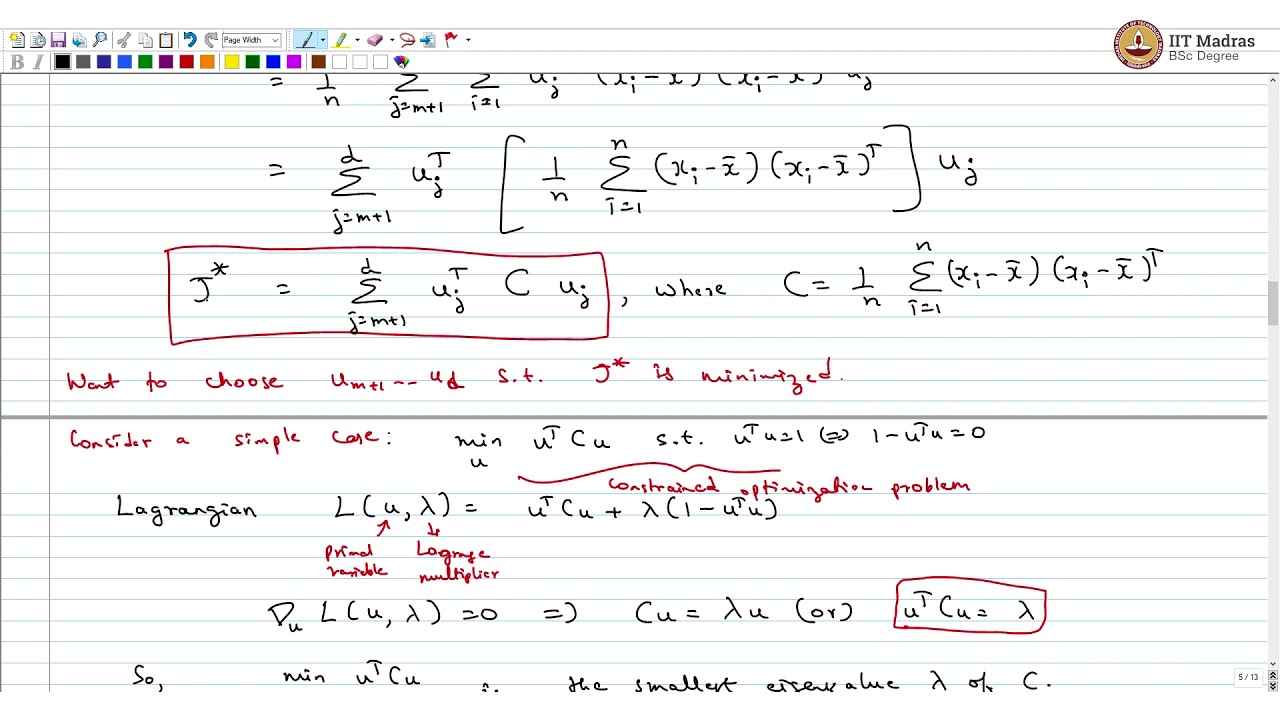 Page Width
IIT Madras
BSc Degree
B I
= 1/n Σ_{j=m+1} Σ_{i=1} u_j (x_i - x̄) (x_i - x̄)^T u_j
= Σ_{j=m+1}^{d} u_j^T [ 1/n Σ_{i=1}^{n} (x_i - x̄) (x_i - x̄)^T ] u_j
J* = Σ_{j=m+1}^{d} u_j^T C u_j , where C = 1/n Σ_{i=1}^{n} (x_i - x̄) (x_i - x̄)^T
Want to choose u_{m+1} -- u_d s.t. J* is minimized.
Consider a simple case: min_u u^T C u s.t. u^T u = 1 (⇒) 1 - u^T u = 0
constrained optimization problem
Lagrangian L(u, λ) = u^T C u + λ(1 - u^T u)
primal variable
Lagrange multiplier
∇_u L(u, λ) = 0 ⇒ Cu = λu (or) u^T C u = λ
So, min u^T C u is the smallest eigenvalue λ of C.
5 / 13